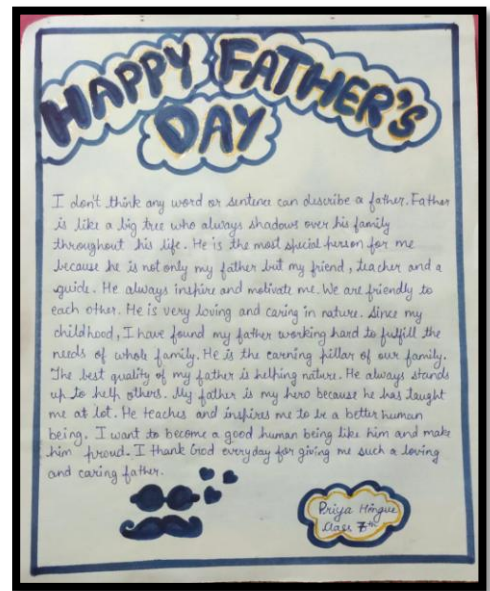 HAPPY FATHER'S
DAY
I don't think any word or sentence can describe a father. Father
is like a big tree who always shadows over his family
throughout his life. He is the most special person for me
because he is not only my father but my friend, teacher and a
guide. He always inspire and motivate me. We are friendly to
each other. He is very loving and caring in nature. Since my
childhood, I have found my father working hard to fulfill the
needs of whole family. He is the earning pillar of our family.
The best quality of my father is helping nature. He always stands
up to help others. My father is my hero because he has taught
me at lot. He teaches and inspires me to be a better human
being. I want to become a good human being like him and make
him proud. I thank God everyday for giving me such a loving
and caring father.
Priya Hingue
Class 7th